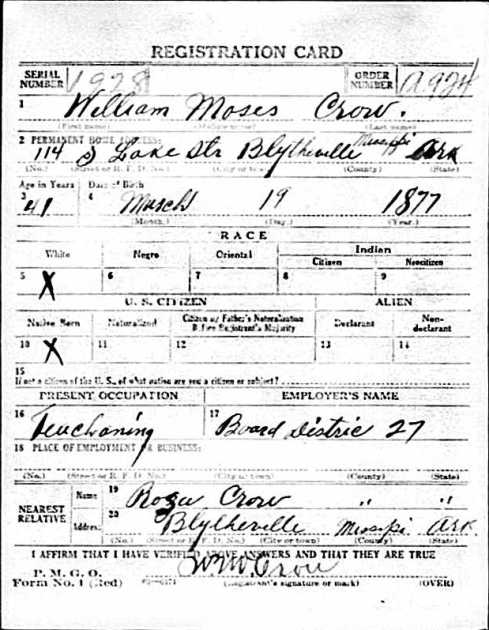 REGISTRATION CARD
SERIAL NUMBER 1928 ORDER NUMBER A924
1 William Moses Crow.
(First name) (Middle name) (Last name)
2 PERMANENT HOME ADDRESS:
114 S Lake Str Blytheville Missippi Ark
(No.) (Street or R. F. D. No.) (City or town) (County) (State)
Age in Years Date of Birth
3 41 4 March 19 1877
(Month.) (Day.) (Year.)
RACE
White Negro Oriental Indian
Citizen Noncitizen
5 X 6 7 8 9
U. S. CITIZEN ALIEN
Native Born Naturalized Citizen by Father's Naturalization Before Registrant's Majority Declarant Non-declarant
10 X 11 12 13 14
15
If not a citizen of the U. S., of what nation are you a citizen or subject?
PRESENT OCCUPATION EMPLOYER'S NAME
16 Teuchaning 17 Board Distric 27
18 PLACE OF EMPLOYMENT OR BUSINESS:
(No.) (Street or R. F. D. No.) (City or town) (County) (State)
NEAREST RELATIVE Name 19 Crow " "
Address 20 Blytheville Ark
(No.) (Street or R. F. D. No.) (City or town) (County) (State)
I AFFIRM THAT I HAVE VERIFIED ABOVE ANSWERS AND THAT THEY ARE TRUE
P. M. G. O.
Form No. 1 (Red) W M Crow
(Registrant's signature or mark) (OVER)